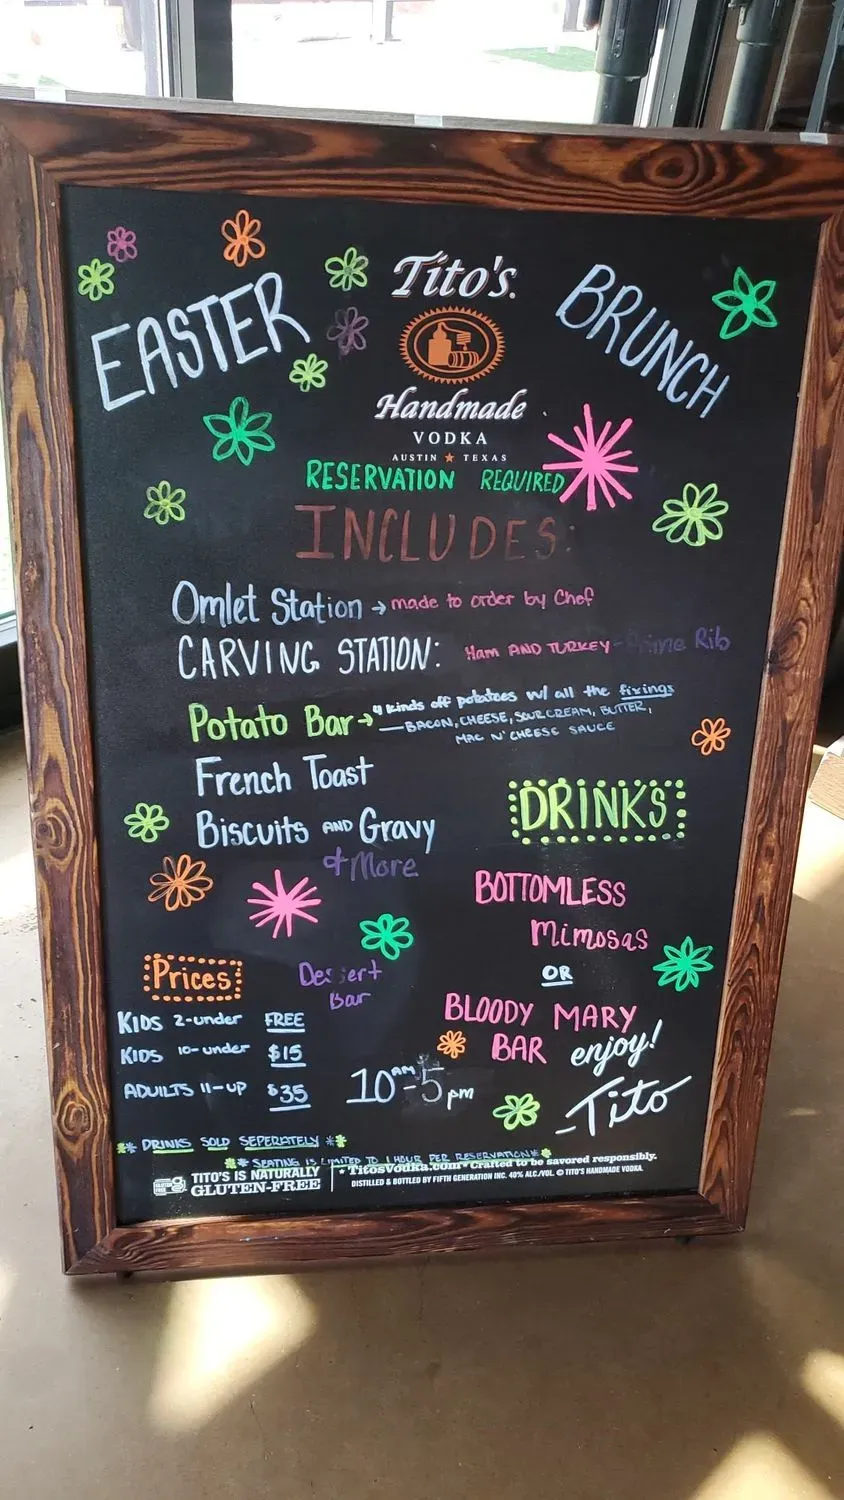 EASTER
Tito's
BRUNCH
Handmade
VODKA
AUSTIN TEXAS
RESERVATION REQUIRED
INCLUDES:
Omlet Station → made to order by Chef
CARVING STATION: Ham AND TURKEY - Prime Rib
Potato Bar → 4 kinds off potatoes w/ all the fixings
— BACON, CHEESE, SOUR CREAM, BUTTER,
MAC N' CHEESE SAUCE
French Toast
Biscuits AND Gravy
& More
DRINKS
BOTTOMLESS
Mimosas
OR
BLOODY MARY
BAR
enjoy!
-Tito
Dessert
Bar
Prices
KIDS 2-under FREE
KIDS 10-under $15
ADULTS 11-UP $35
10AM-5pm
** DRINKS SOLD SEPERATELY **
** SEATING IS LIMITED TO 1 HOUR PER RESERVATION**
TITO'S IS NATURALLY
GLUTEN-FREE
• TitosVodka.com • Crafted to be savored responsibly.
DISTILLED & BOTTLED BY FIFTH GENERATION INC. 40% ALC./VOL. © TITO'S HANDMADE VODKA.